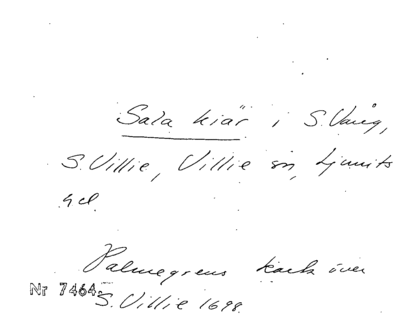 Sala kiär i S. Vång,
S. Villie, Villie sn, Ljunits
hd.
Palmegrens karta över
Nr 7464. S. Villie 1698